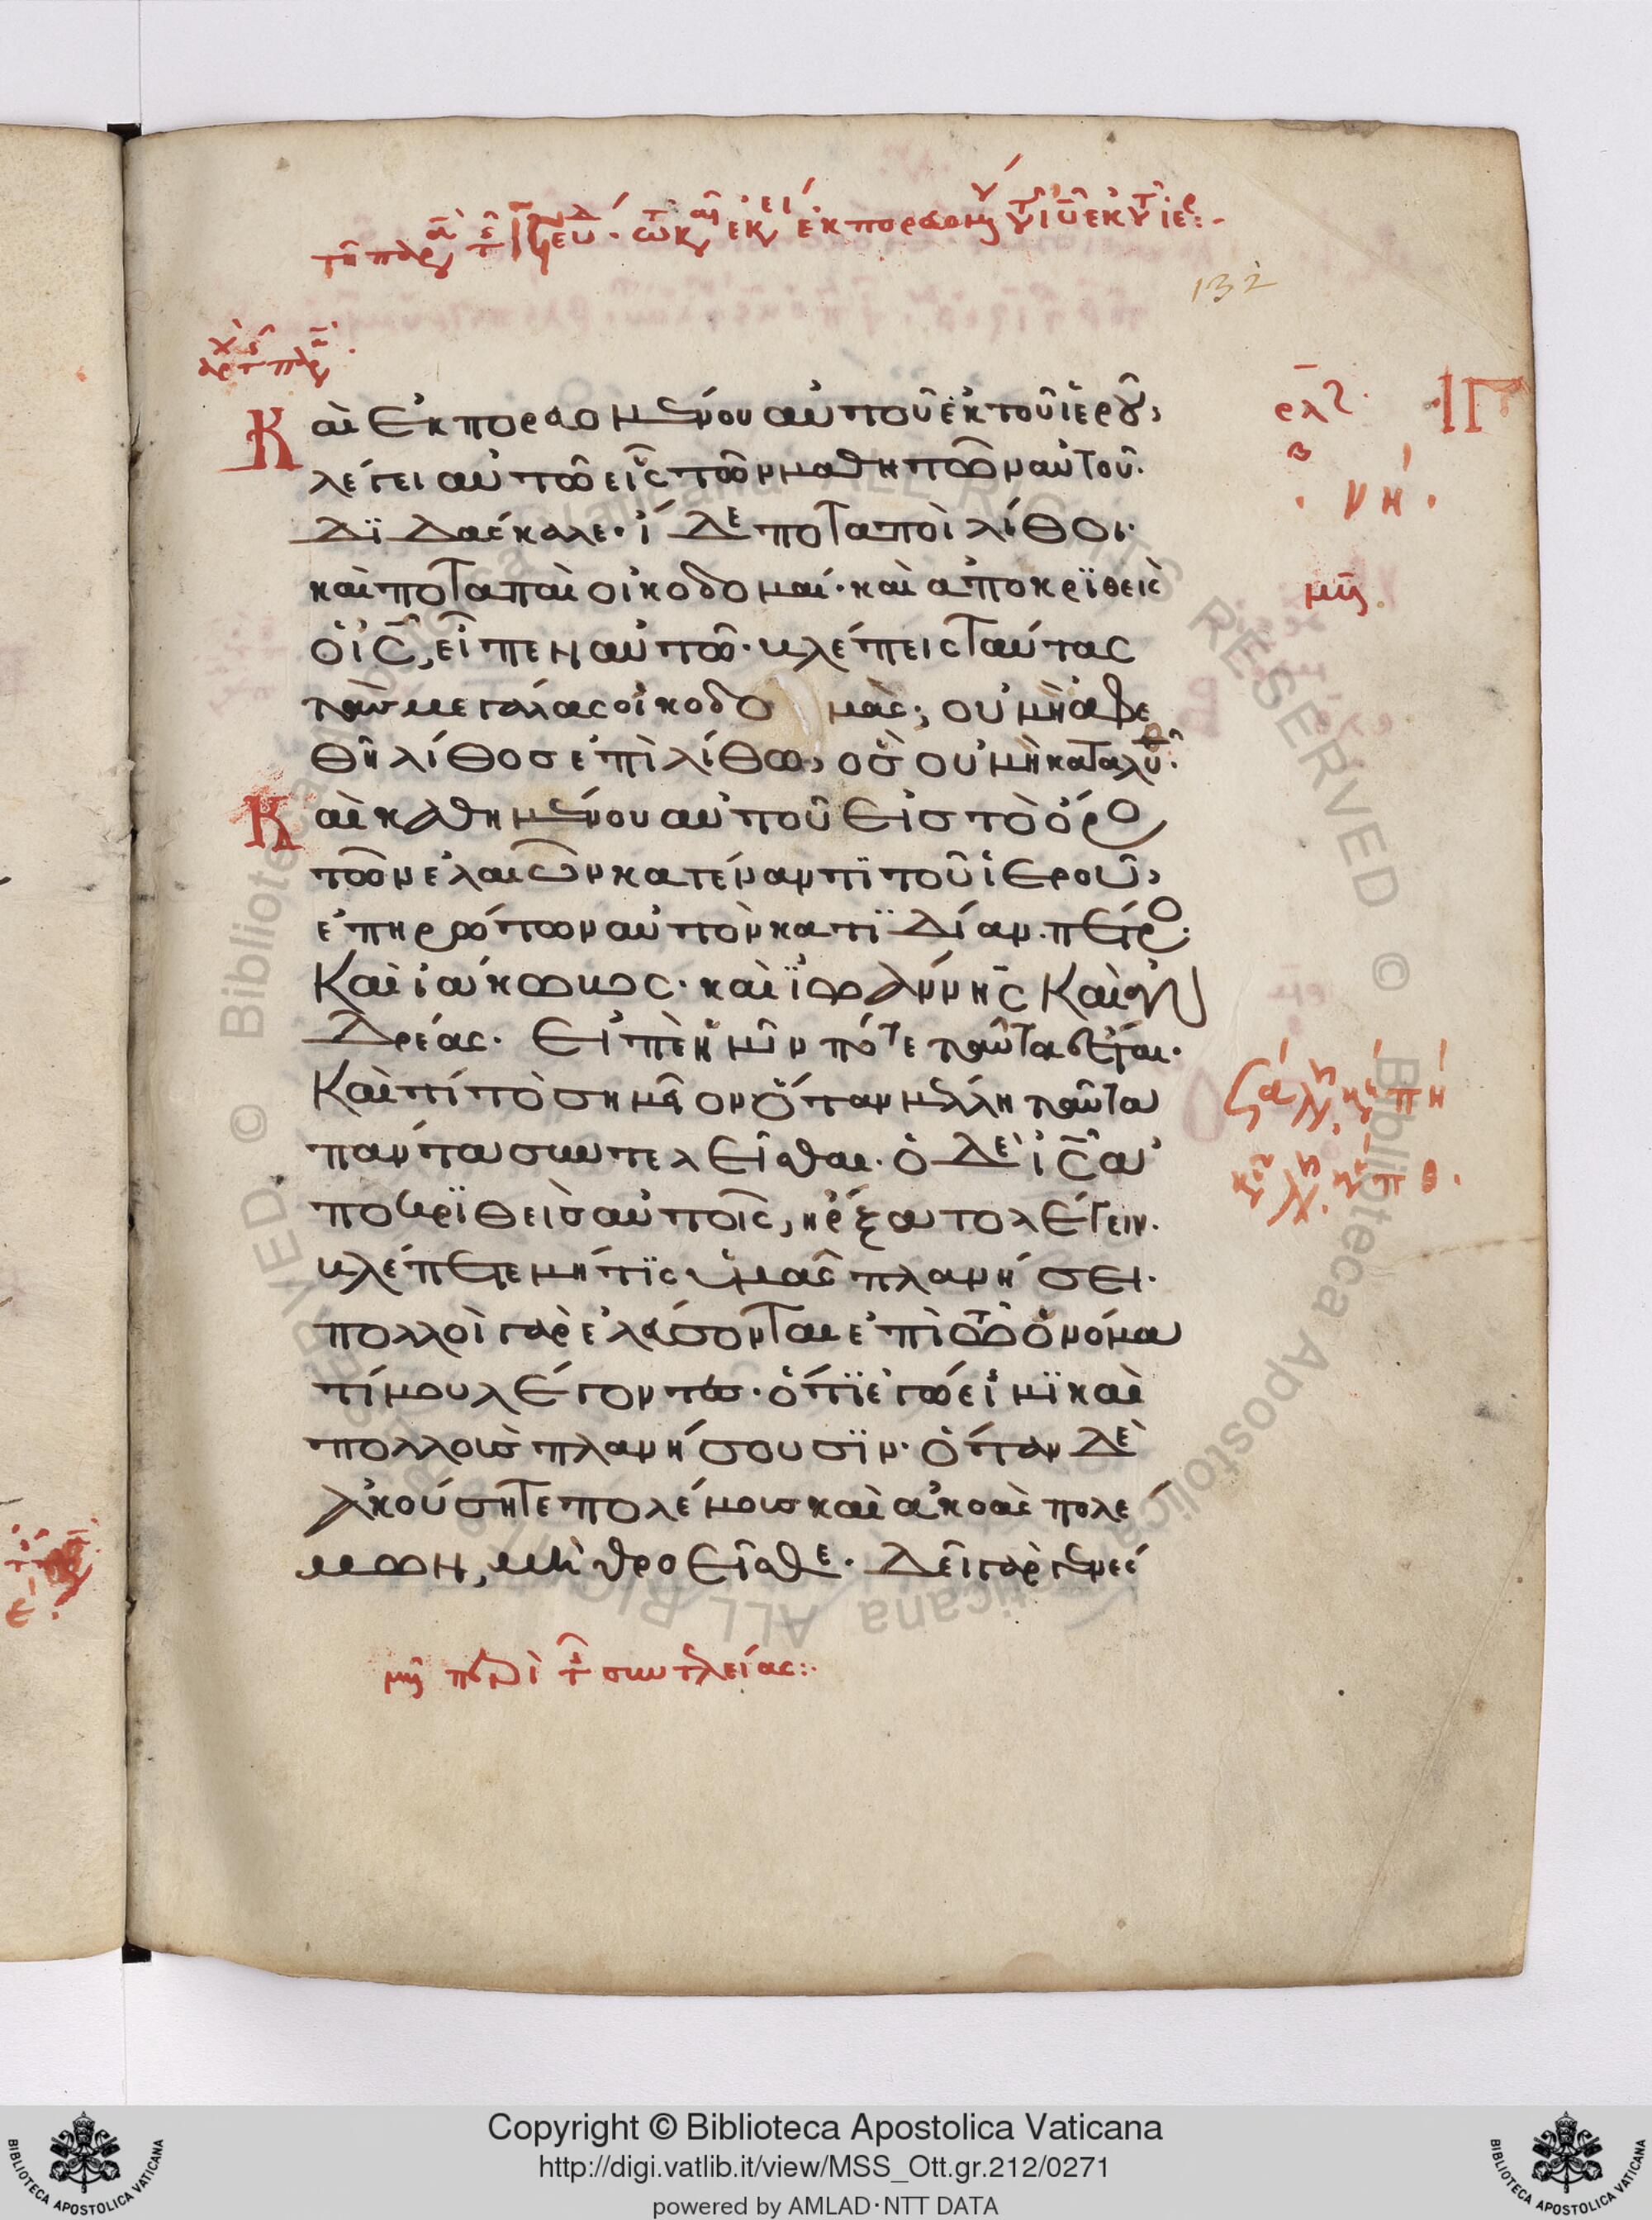 132
Καὶ ἐκπορευομένου αὐτοῦ ἐκ τοῦ ἱεροῦ,
λέγει αὐτῶ εἷς τῶν μαθητῶν αὐτοῦ.
Διδάσκαλε· ἴδε ποταποὶ λίθοι·
καὶ ποταπαὶ οἰκοδομαί· καὶ ἀποκριθεὶς
ὁ ις, εἶπεν αὐτῶ· βλέπεις ταύτας
τὰς μεγάλας οἰκοδομάς; οὐ μὴ ἀφε
θῆ λίθος ἐπὶ λίθω, ὃς οὐ μὴ καταλυθῆ·
Καὶ καθημένου αὐτοῦ εἰς τὸ ὄρος
τῶν ἐλαιῶν κατέναντι τοῦ ἱεροῦ,
ἐπηρώτων αὐτὸν κατιδίαν· πέτρος·
Καὶ ἰάκωβος· καὶ ἰωάννης Καὶ ἀν
δρέας· Εἰπὲ ἡμῖν πότε ταῦτα ἔσται·
Καὶ τί τὸ σημεῖον ὅταν μέλλη ταῦτα
πάντα συντελεῖσθαι· ὁ δὲ ις ἀ
ποκριθεὶς αὐτοῖς, ἤρξατο λέγειν·
βλέπετε μή τις ὑμᾶς πλανήσει·
πολλοὶ γὰρ ἐλεύσονται ἐπὶ τῶ ὀνόμα
τί μου λέγοντες· ὅτι ἐγώ εἰμι καὶ
πολλοὺς πλανήσουσιν· ὅταν δὲ
ἀκούσητε πολέμους καὶ ἀκοὰς πολέ
μων, μὴ θροεῖσθε· Δεῖ γὰρ γενέσ
ρλς·
β
ΙΓ
· νή ·
περὶ τῆς συντελείας:·
Copyright © Biblioteca Apostolica Vaticana
http://digi.vatlib.it/view/MSS_Ott.gr.212/0271
powered by AMLAD·NTT DATA
BIBLIOTECA APOSTOLICA VATICANA
BIBLIOTECA APOSTOLICA VATICANA